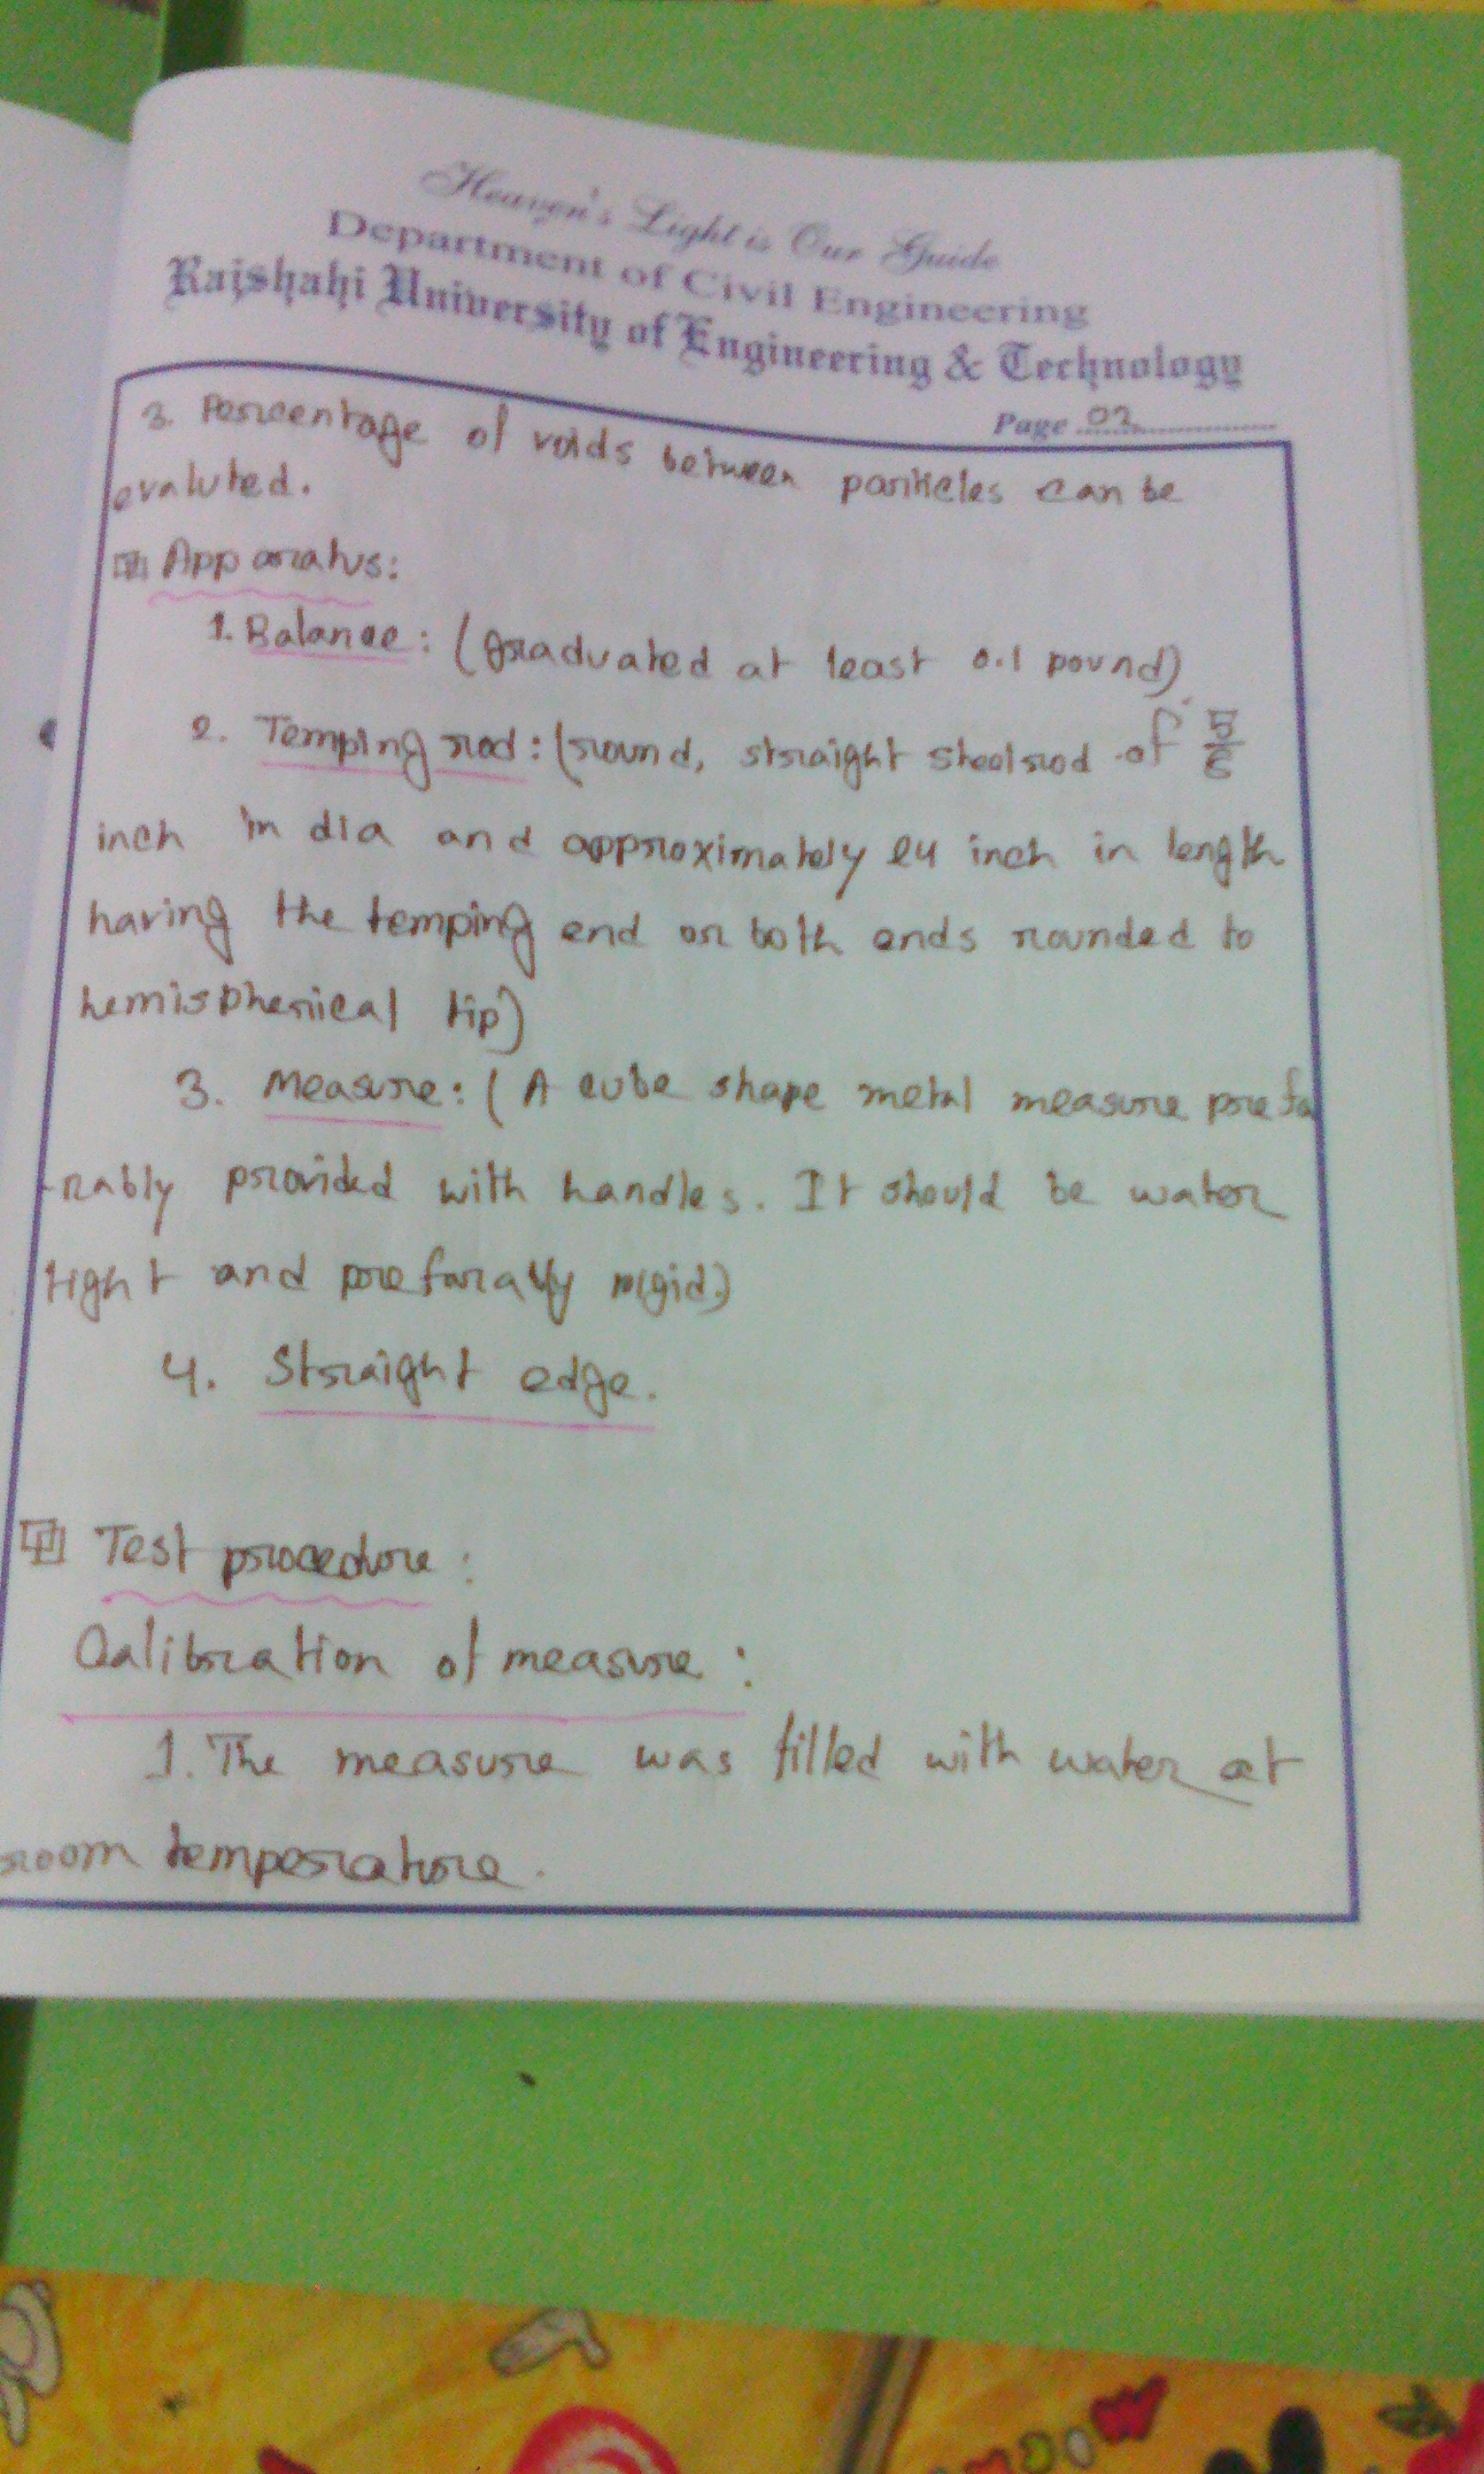 Heaven's Light is Our Guide
Department of Civil Engineering
Rajshahi University of Engineering & Technology
Page 02
3. Percentage of voids between particles can be
evaluted.
Apparatus:
1. Balance: (graduated at least 0.1 pound)
2. Temping rod: (round, straight steel rod of 5/8
inch in dia and approximately 24 inch in length
having the temping end or both ends rounded to
hemispherical tip)
3. Measure: (A cube shape metal measure prefa
-rably provided with handles. It should be water
tight and prefarally rigid.)
4. Straight edge.
Test procedure:
Calibration of measure:
1. The measure was filled with water at
room temperature.